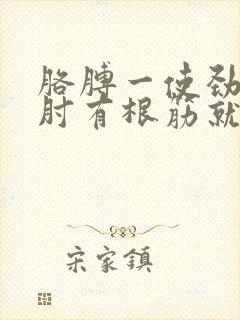 胳膊一使劲
肘有根筋就
宋家鎮